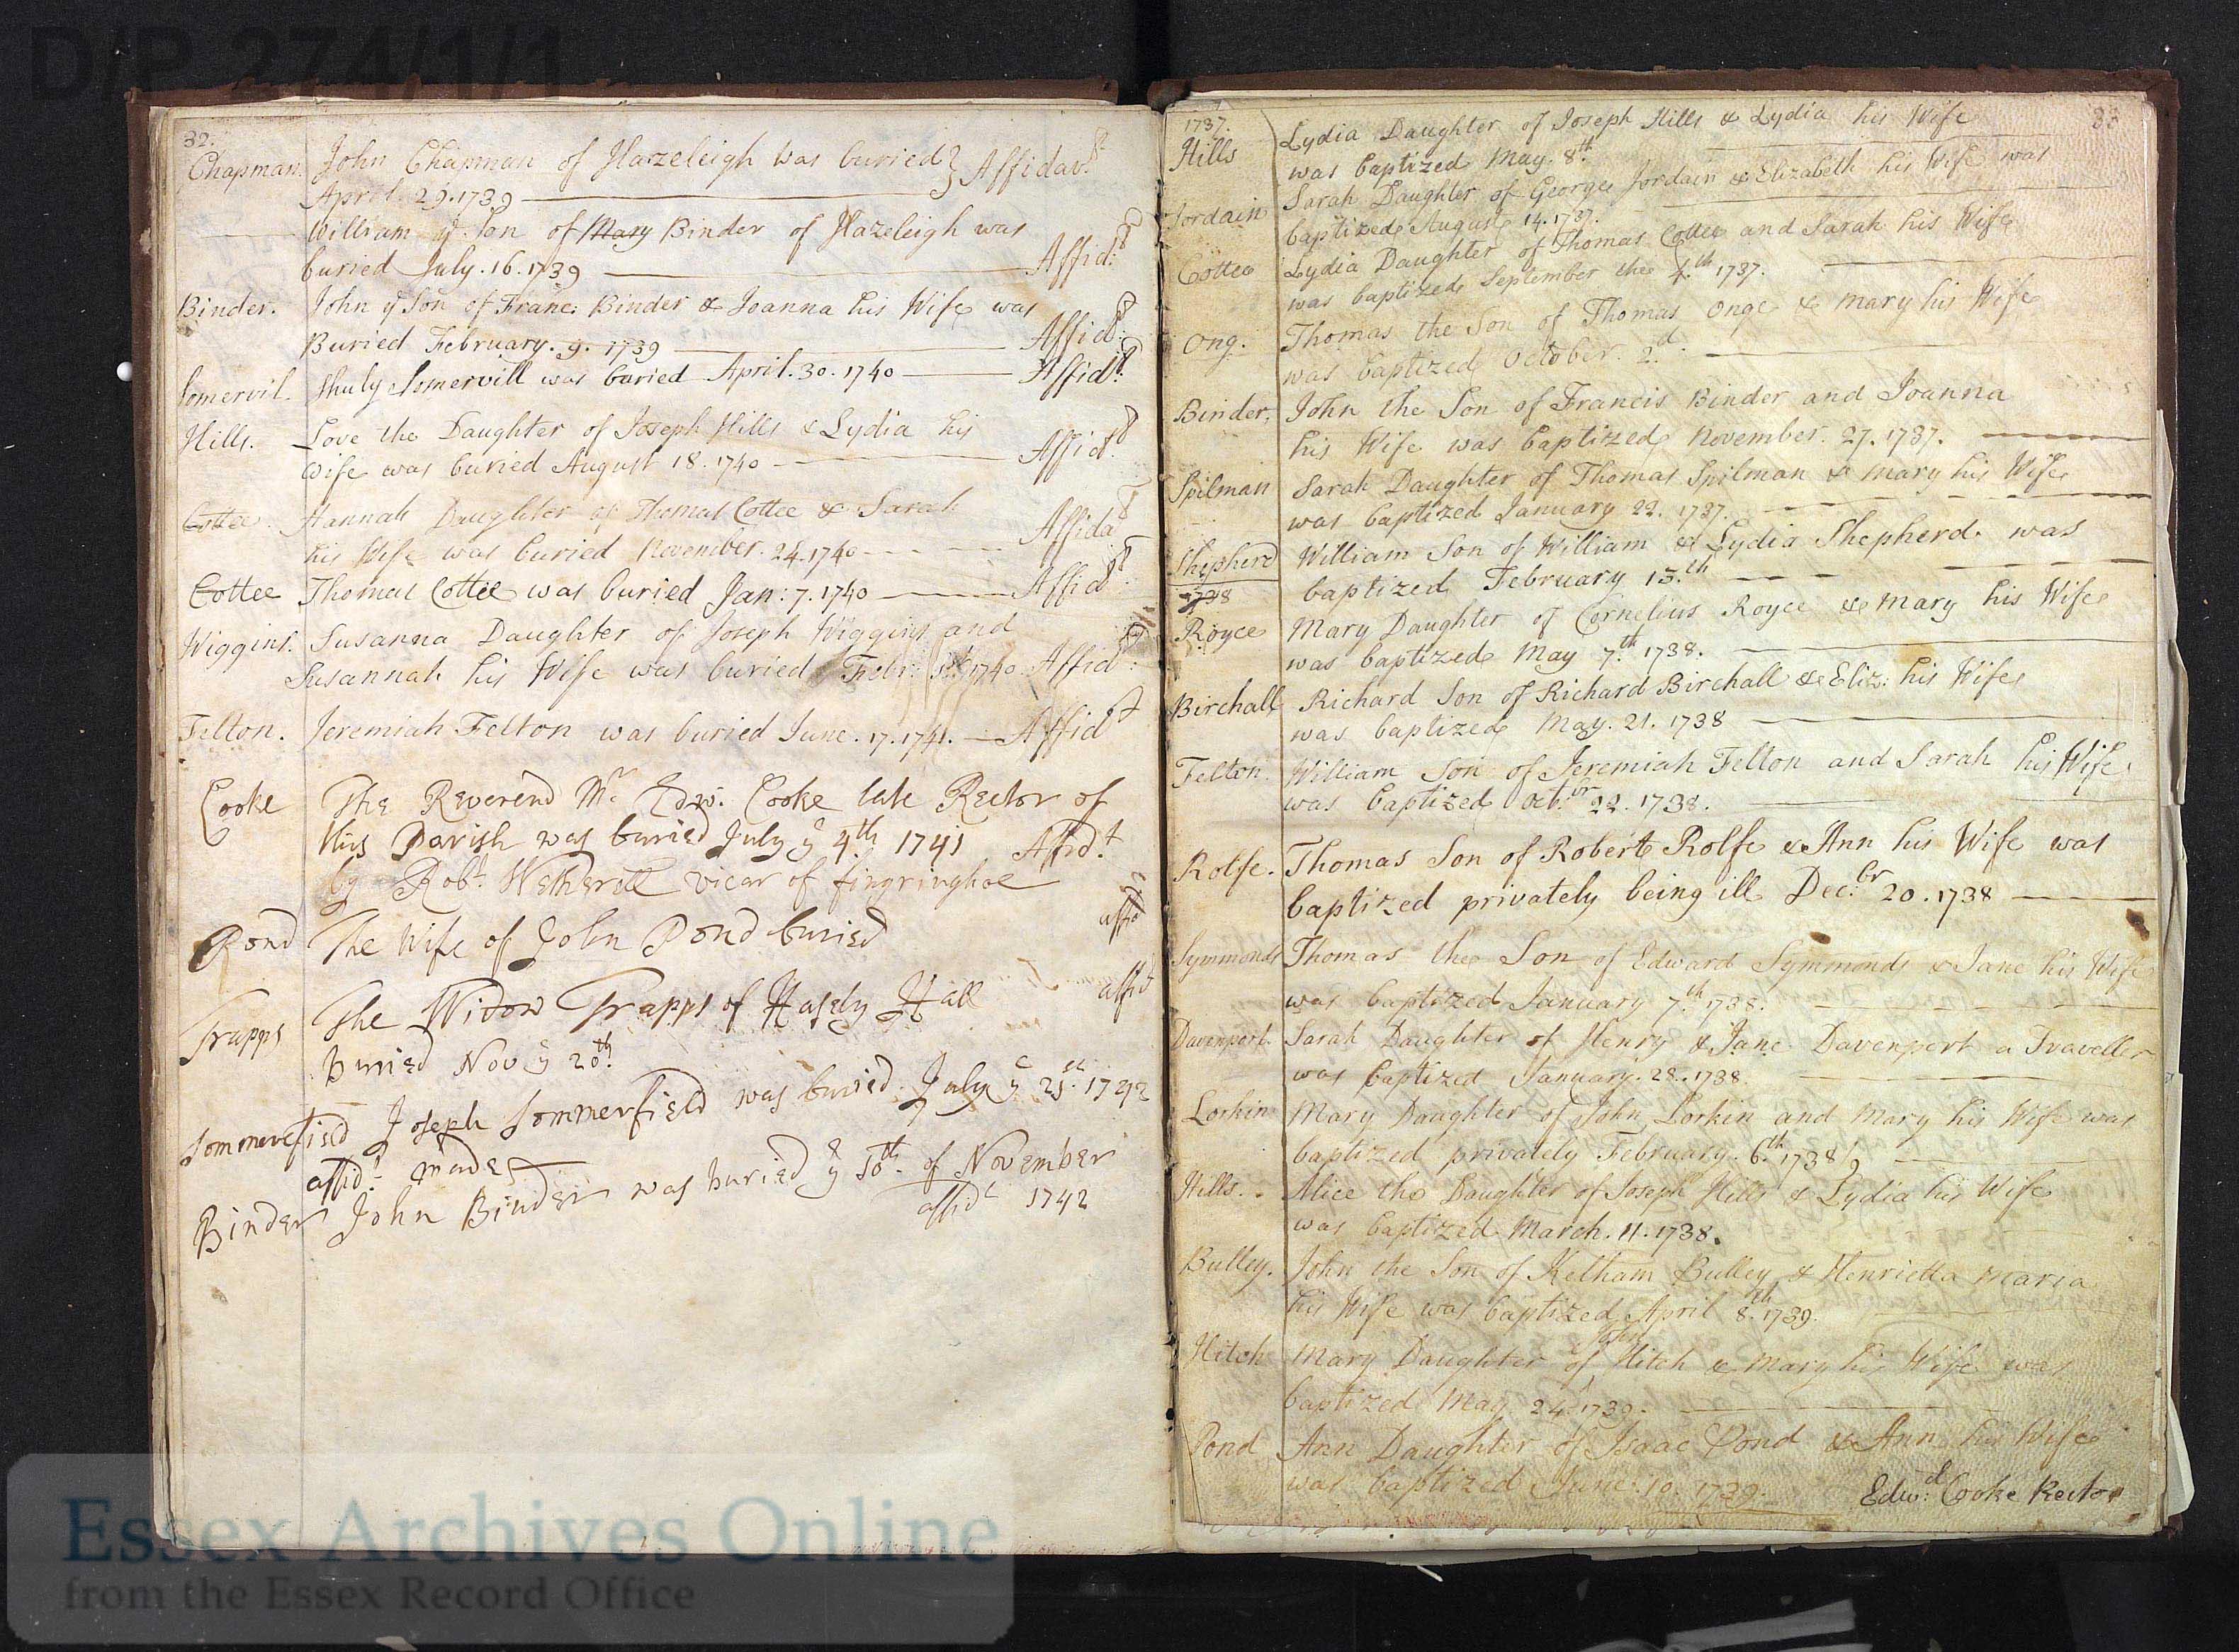 D/P 274/1/1
32.
Chapman. John Chapman of Hazeleigh was buried } Affidav.t
April. 29. 1739
William ye Son of Mary Binder of Hazeleigh was
buried July. 16. 1739 Affid:t
Binder. John ye Son of Franc: Binder & Joanna his Wife was
Buried February. 9. 1739 Affid:t
Somervil. Shuly Somervill was buried April. 30. 1740 Affid:t
Hills. Love the Daughter of Joseph Hills & Lydia his
Wife was buried August 18. 1740 Affid:t
Cottee. Hannah Daughter of Thomas Cottee & Sarah
his Wife was buried November. 24. 1740 Affidt
Cottee Thomas Cottee was buried Jan: 7. 1740 Affidt
Wiggins. Susanna Daughter of Joseph Wiggins and
Susannah his Wife was buried Febr: 1740 Affid:t
Felton. Jeremiah Felton was buried June. 17. 1741. Affidt
Cooke The Reverend Mr Edw. Cooke late Rector of
this Parish was buried July ye 4th 1741 Affid.t
by Robt. Wetherell vicar of fingringhoe
Pond The Wife of John Pond buried affidt
Trapps The Widow Trapps of Hasely Hall affidt
buried Nov ye 20th.
Sommerfield Joseph Sommerfield was buried July ye 21st. 1742
affid.t made
Binder John Binder was buried ye 10th. of November
affidt 1742
1737. 33
Hills Lydia Daughter of Joseph Hills & Lydia his Wife
was baptized May. 8th.
Jordain Sarah Daughter of George Jordain & Elizabeth his Wife was
baptized August 14. 1737.
Cottee Lydia Daughter of Thomas Cottee and Sarah his Wife
was baptized September the 4.th 1737.
Ong. Thomas the Son of Thomas Onge & Mary his Wife
was baptized October. 2.d
Binder. John the Son of Francis Binder and Joanna
his Wife was baptized November. 27. 1737.
Spilman Sarah Daughter of Thomas Spilman & Mary his Wife
was baptized January 22. 1737.
Shepherd William Son of William & Lydia Shepherd. was
baptized February 13.th
1738
Royce Mary Daughter of Cornelius Royce & Mary his Wife
was baptized May 7.th 1738.
Birchall Richard Son of Richard Birchall & Eliz: his Wife
was baptized May. 21. 1738
Felton. William Son of Jeremiah Felton and Sarah his Wife
was baptized Oct:br 22. 1738.
Rolfe. Thomas Son of Robert Rolfe & Ann his Wife was
baptized privately being ill Dec:br 20. 1738
Symmonds Thomas the Son of Edward Symmonds & Jane his Wife
was baptized January 7.th 1738.
Davenport. Sarah Daughter of Henry & Jane Davenport a Traveller
was baptized January. 28. 1738.
Lorkin Mary Daughter of John Lorkin and Mary his Wife was
baptized privately February. 6.th 1738/9
Hills. Alice the Daughter of Joseph Hills & Lydia his Wife
was baptized March. 11. 1738.
Bulley. John the Son of Kelham Bulley & Henrietta Maria
his Wife was baptized April 8.th 1739.
Hitch Mary Daughter of John Hitch & Mary his Wife was
baptized May 24. 1739.
Pond Ann Daughter of Isaac Pond & Ann his Wife
was baptized June. 10. 1739.
Edw:d Cooke Rector
Essex Archives Online
from the Essex Record Office